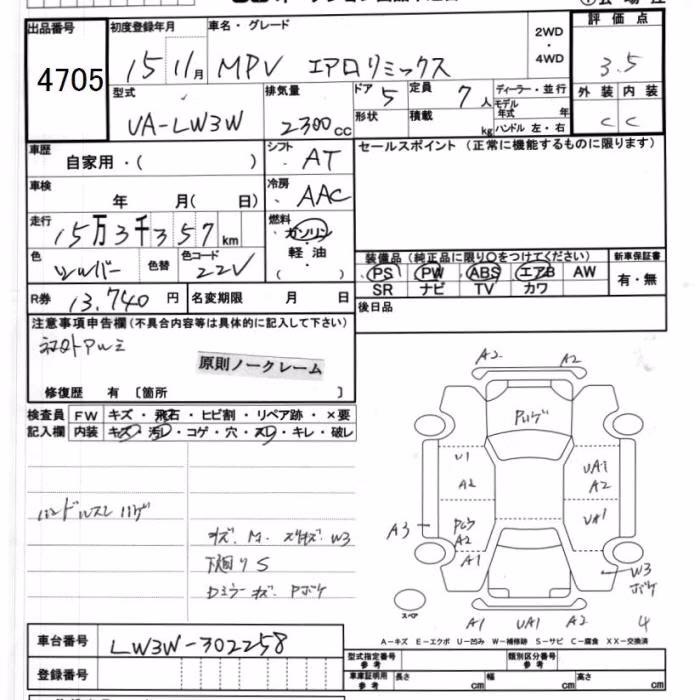 出品番号 初度登録年月 車名・グレード 2WD ・ 4WD 評価点
4705 15 11月 MPV エアロリミックス 3.5
型式 排気量 ドア 5 定員 7人 ディーラー・並行 外装 内装
UA-LW3W 2300cc 形状 積載 kg モデル年式 年 ハンドル 左・右 C C
車歴 自家用・( ) シフト AT セールスポイント (正常に機能するものに限ります)
車検 年 月( 日) 冷房 AAC
走行 15万3千357km 燃料 ガソリン・軽油・( )
色 シルバー 色替 色コード 22V 装備品 (純正品に限り○をつけてください) 新車保証書
PS PW ABS エアB AW 有・無
SR ナビ TV カワ
R券 13,740円 名変期限 月 日 後日品
注意事項申告欄(不具合内容等は具体的に記入して下さい)
社外アルミ
原則ノークレーム
修復歴 有 〔箇所 〕
検査員記入欄 FW キズ・飛石・ヒビ割・リペア跡・×要
内装 キズ・汚レ・コゲ・穴・スレ・キレ・破レ
ハンドルスレ ハゲ
キズ. M. スリキズ W3
下廻りS
Dミラーキズ. Pボケ
A2 A2
Pハゲ
U1 UA1
A2 A2
A3 UA1
A2
A1 W3
ボケ
スペア
A1 UA1 A2 4
A−キズ E−エクボ U−凹み W−補修跡 S−サビ C−腐食 XX−交換済
車台番号 LW3W-302258
登録番号
型式指定番号 参考 類別区分番号 参考
車庫証明用 参考 長さ cm 幅 cm 高さ cm